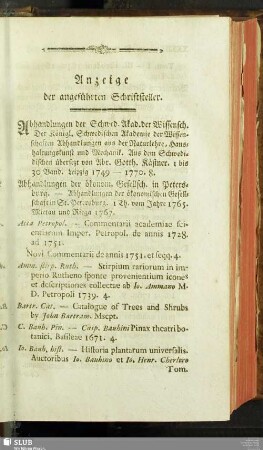 Anzeige
der angeführten Schriftsteller.
Abhandlungen der Schwed. Akad. der Wissensch.
Der Königl. Schwedischen Akademie der Wissen-
schaften Abhandlungen aus der Naturlehre, Haus-
haltungskunst und Mechanik. Aus dem Schwedi-
dischen übersezt von Abr. Gotth. Kästner. 1 bis
30 Band. Leipzig 1749 — 1770. 8.
Abhandlungen der ökonom. Gesellsch. in Peters-
burg. — Abhandlungen der ökonomischen Gesell-
schaft in St. Petersburg. 1 Th. vom Jahre 1765.
Mietau und Riega 1767.
Acta Petropol. — Commentarii academiae sci-
entiarum Imper. Petropol. de annis 1728.
ad 1751.
Novi Commentarii de annis 1751. et seqq. 4.
Amm. stirp. Ruth. — Stirpium rariorum in im-
perio Rutheno sponte provenientium icones
et descriptiones collectae ab Io. Ammano M.
D. Petropoli 1739. 4.
Bartr. Cat. — Catalogue of Trees and Shrubs
by John Bartram. Mscpt.
C. Bauh. Pin. — Casp. Bauhini Pinax theatri bo-
tanici, Basileae 1671. 4.
Io. Bauh. hist. — Historia plantarum universalis.
Auctoribus Io. Bauhino et Io. Henr. Cherlero
Tom.
SLUB